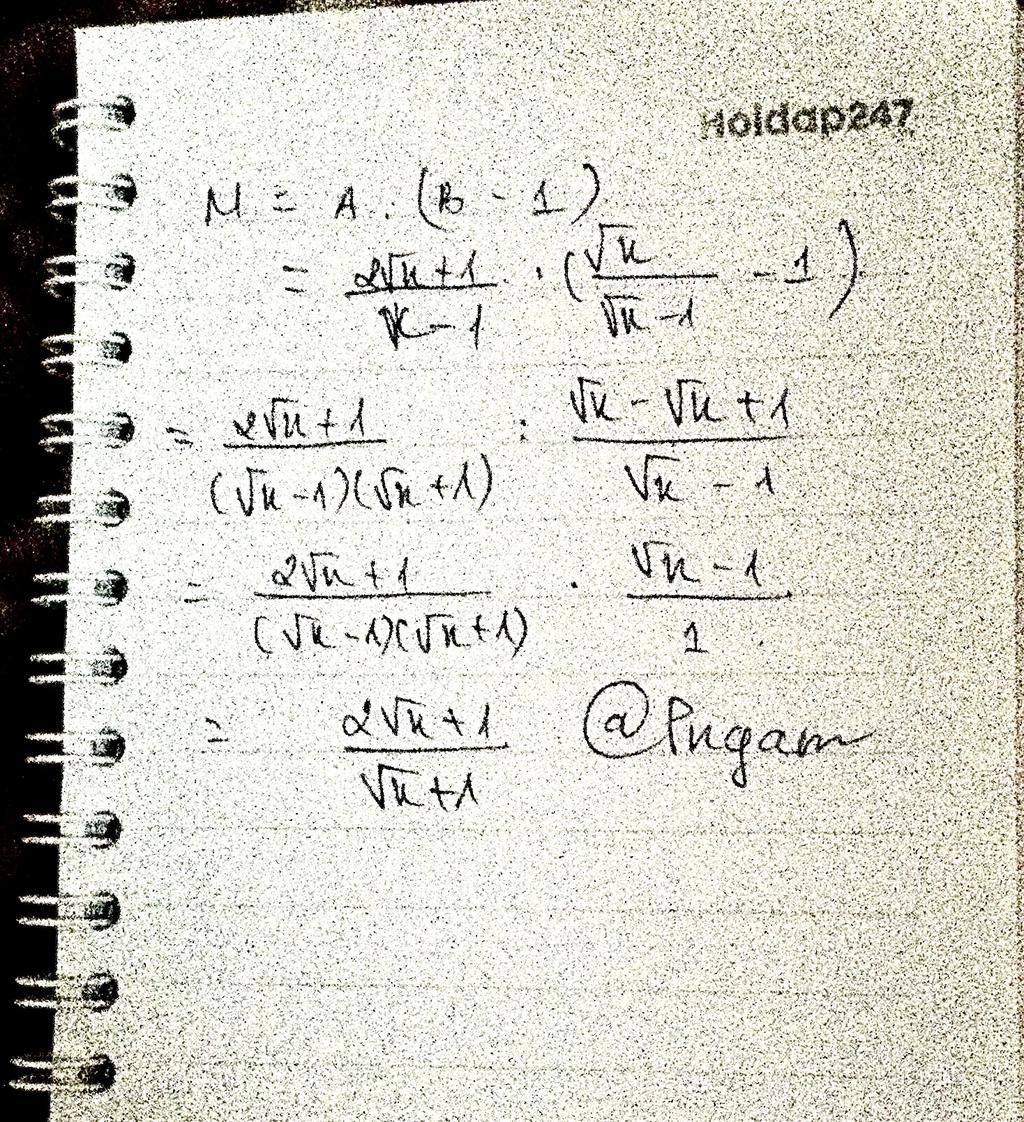 Hoidap247
M = A : (B - 1)
= \frac{2\sqrt{x}+1}{x-1} : (\frac{\sqrt{x}}{\sqrt{x}-1} - 1)
= \frac{2\sqrt{x}+1}{(\sqrt{x}-1)(\sqrt{x}+1)} : \frac{\sqrt{x}-\sqrt{x}+1}{\sqrt{x}-1}
= \frac{2\sqrt{x}+1}{(\sqrt{x}-1)(\sqrt{x}+1)} . \frac{\sqrt{x}-1}{1}
= \frac{2\sqrt{x}+1}{\sqrt{x}+1} @Pngam